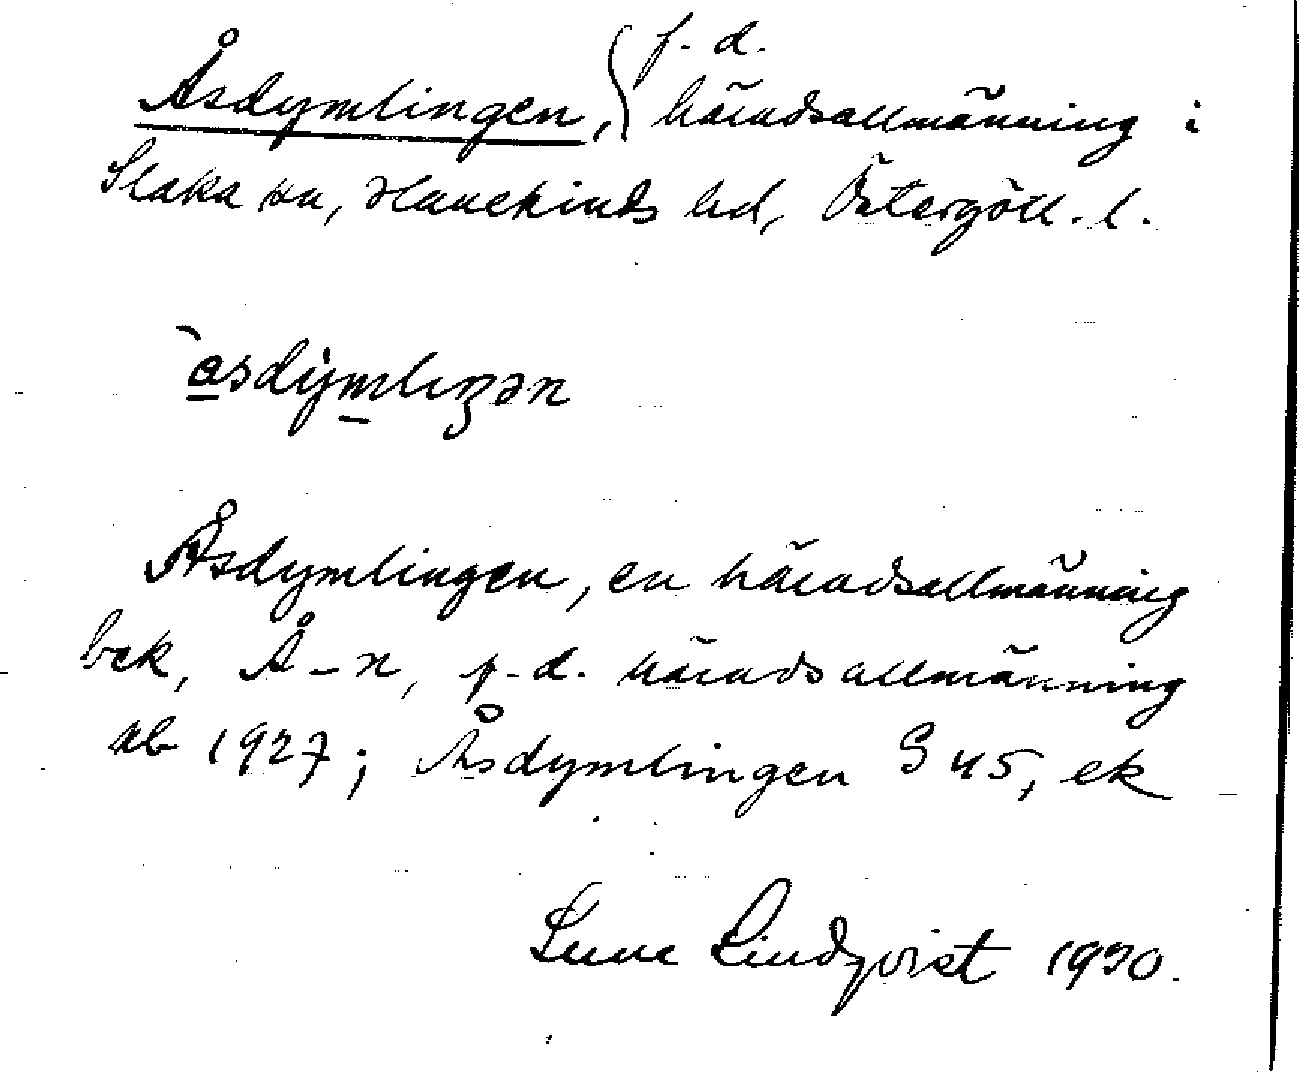 f. d.
Åsdymlingen, häradsallmänning i
Slaka sn, Hanekinds hd, Östergötl. l.
àsdỳmlıŋən
Åsdymlingen, en häradsallmänning
bek, Å-n, f. d. häradsallmänning
ab 1927; Åsdymlingen G 45, ek
Sune Lindqvist 1930.